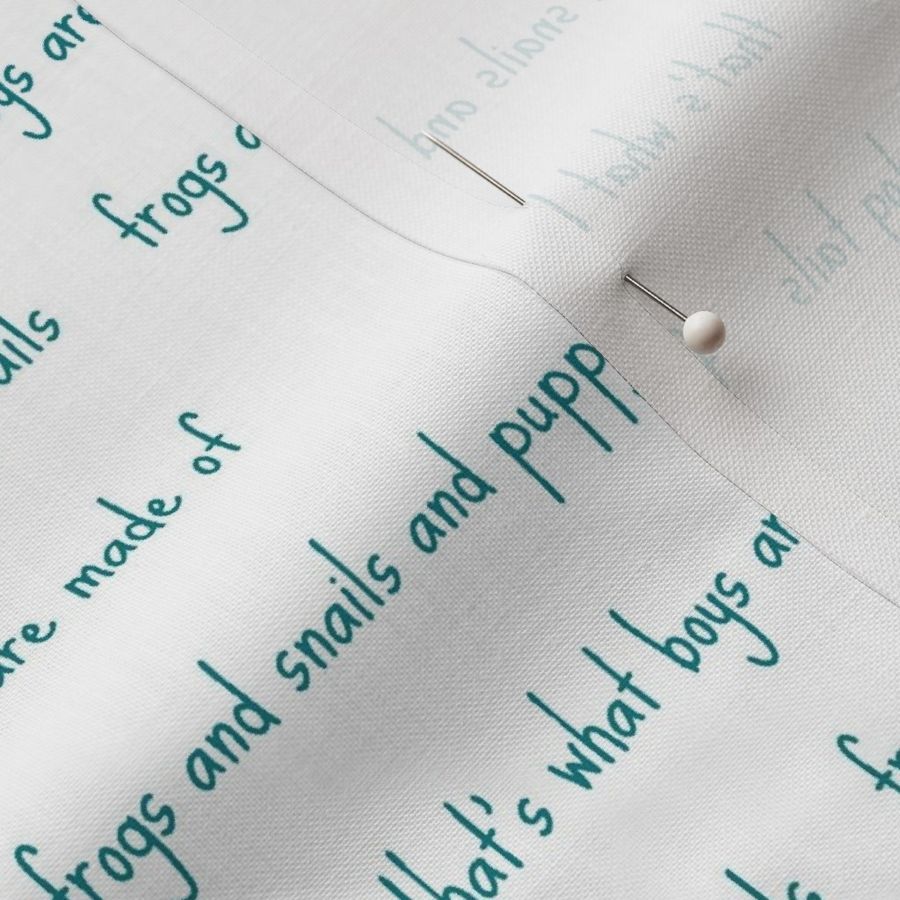 ys are
frogs a
ails
are made of
frogs and snails and pupp
that's what boys ar
fr
ls
snails and
that's what
tails